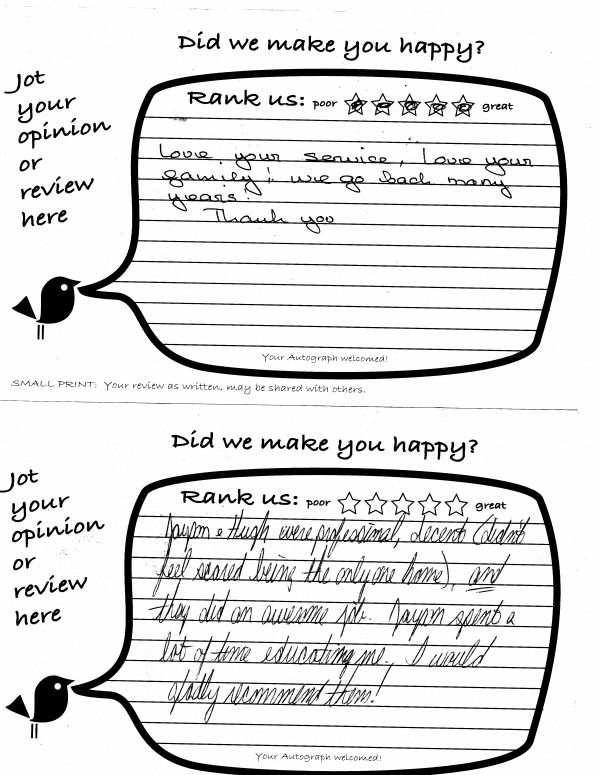 Did we make you happy?
Jot
your
opinion
or
review
here
Rank us: poor great
Love your service, love your
family! we go back many
years!
Thank you
Your Autograph welcomed!
SMALL PRINT: Your review as written, may be shared with others.
Did we make you happy?
Jot
your
opinion
or
review
here
Rank us: poor great
& Hugh were professional, decent (didn't
feel scared being the only one home), and
they did an awesome job. spent a
lot of time educating me. I would
gladly recommend them!
Your Autograph welcomed!